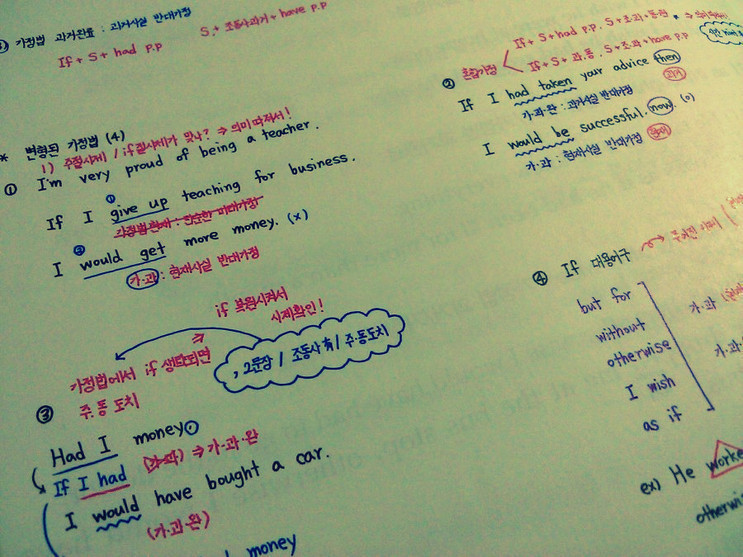 가정법 과거완료 : 과거사실 반대가정
If + S + had p.p S + 조동사과거 + have p.p
* 변형된 가정법 (4)
1) 주절시제 / if절시제가 맞나? ⇒ 의미따져서!
① I'm very proud of being a teacher.
①
If I give up teaching for business.
가정법현재 : 단순한 미래가정
②
I would get more money. (x)
가·과 : 현재사실 반대가정
if 복원시켜서
시제확인!
, 2문장 / 조동사 有 / 주·동도치
가정법에서 if 생략되면
주·동 도치
③
Had I money
If I had (가·과) ⇒ 가·과·완
I would have bought a car.
(가·과·완)
money
② 혼합가정
If + S + had p.p. S + 조·과 + 동원
If + S + 과·동. S + 조·과 + have p.p
If I had taken your advice then
과거
가·과·완 : 과거사실 반대가정
I would be successful. now. (o)
가·과 : 현재사실 반대가정 현재
④ If 대용어구
but for
without
otherwise
I wish
as if
가·과
ex) He worke
otherwis